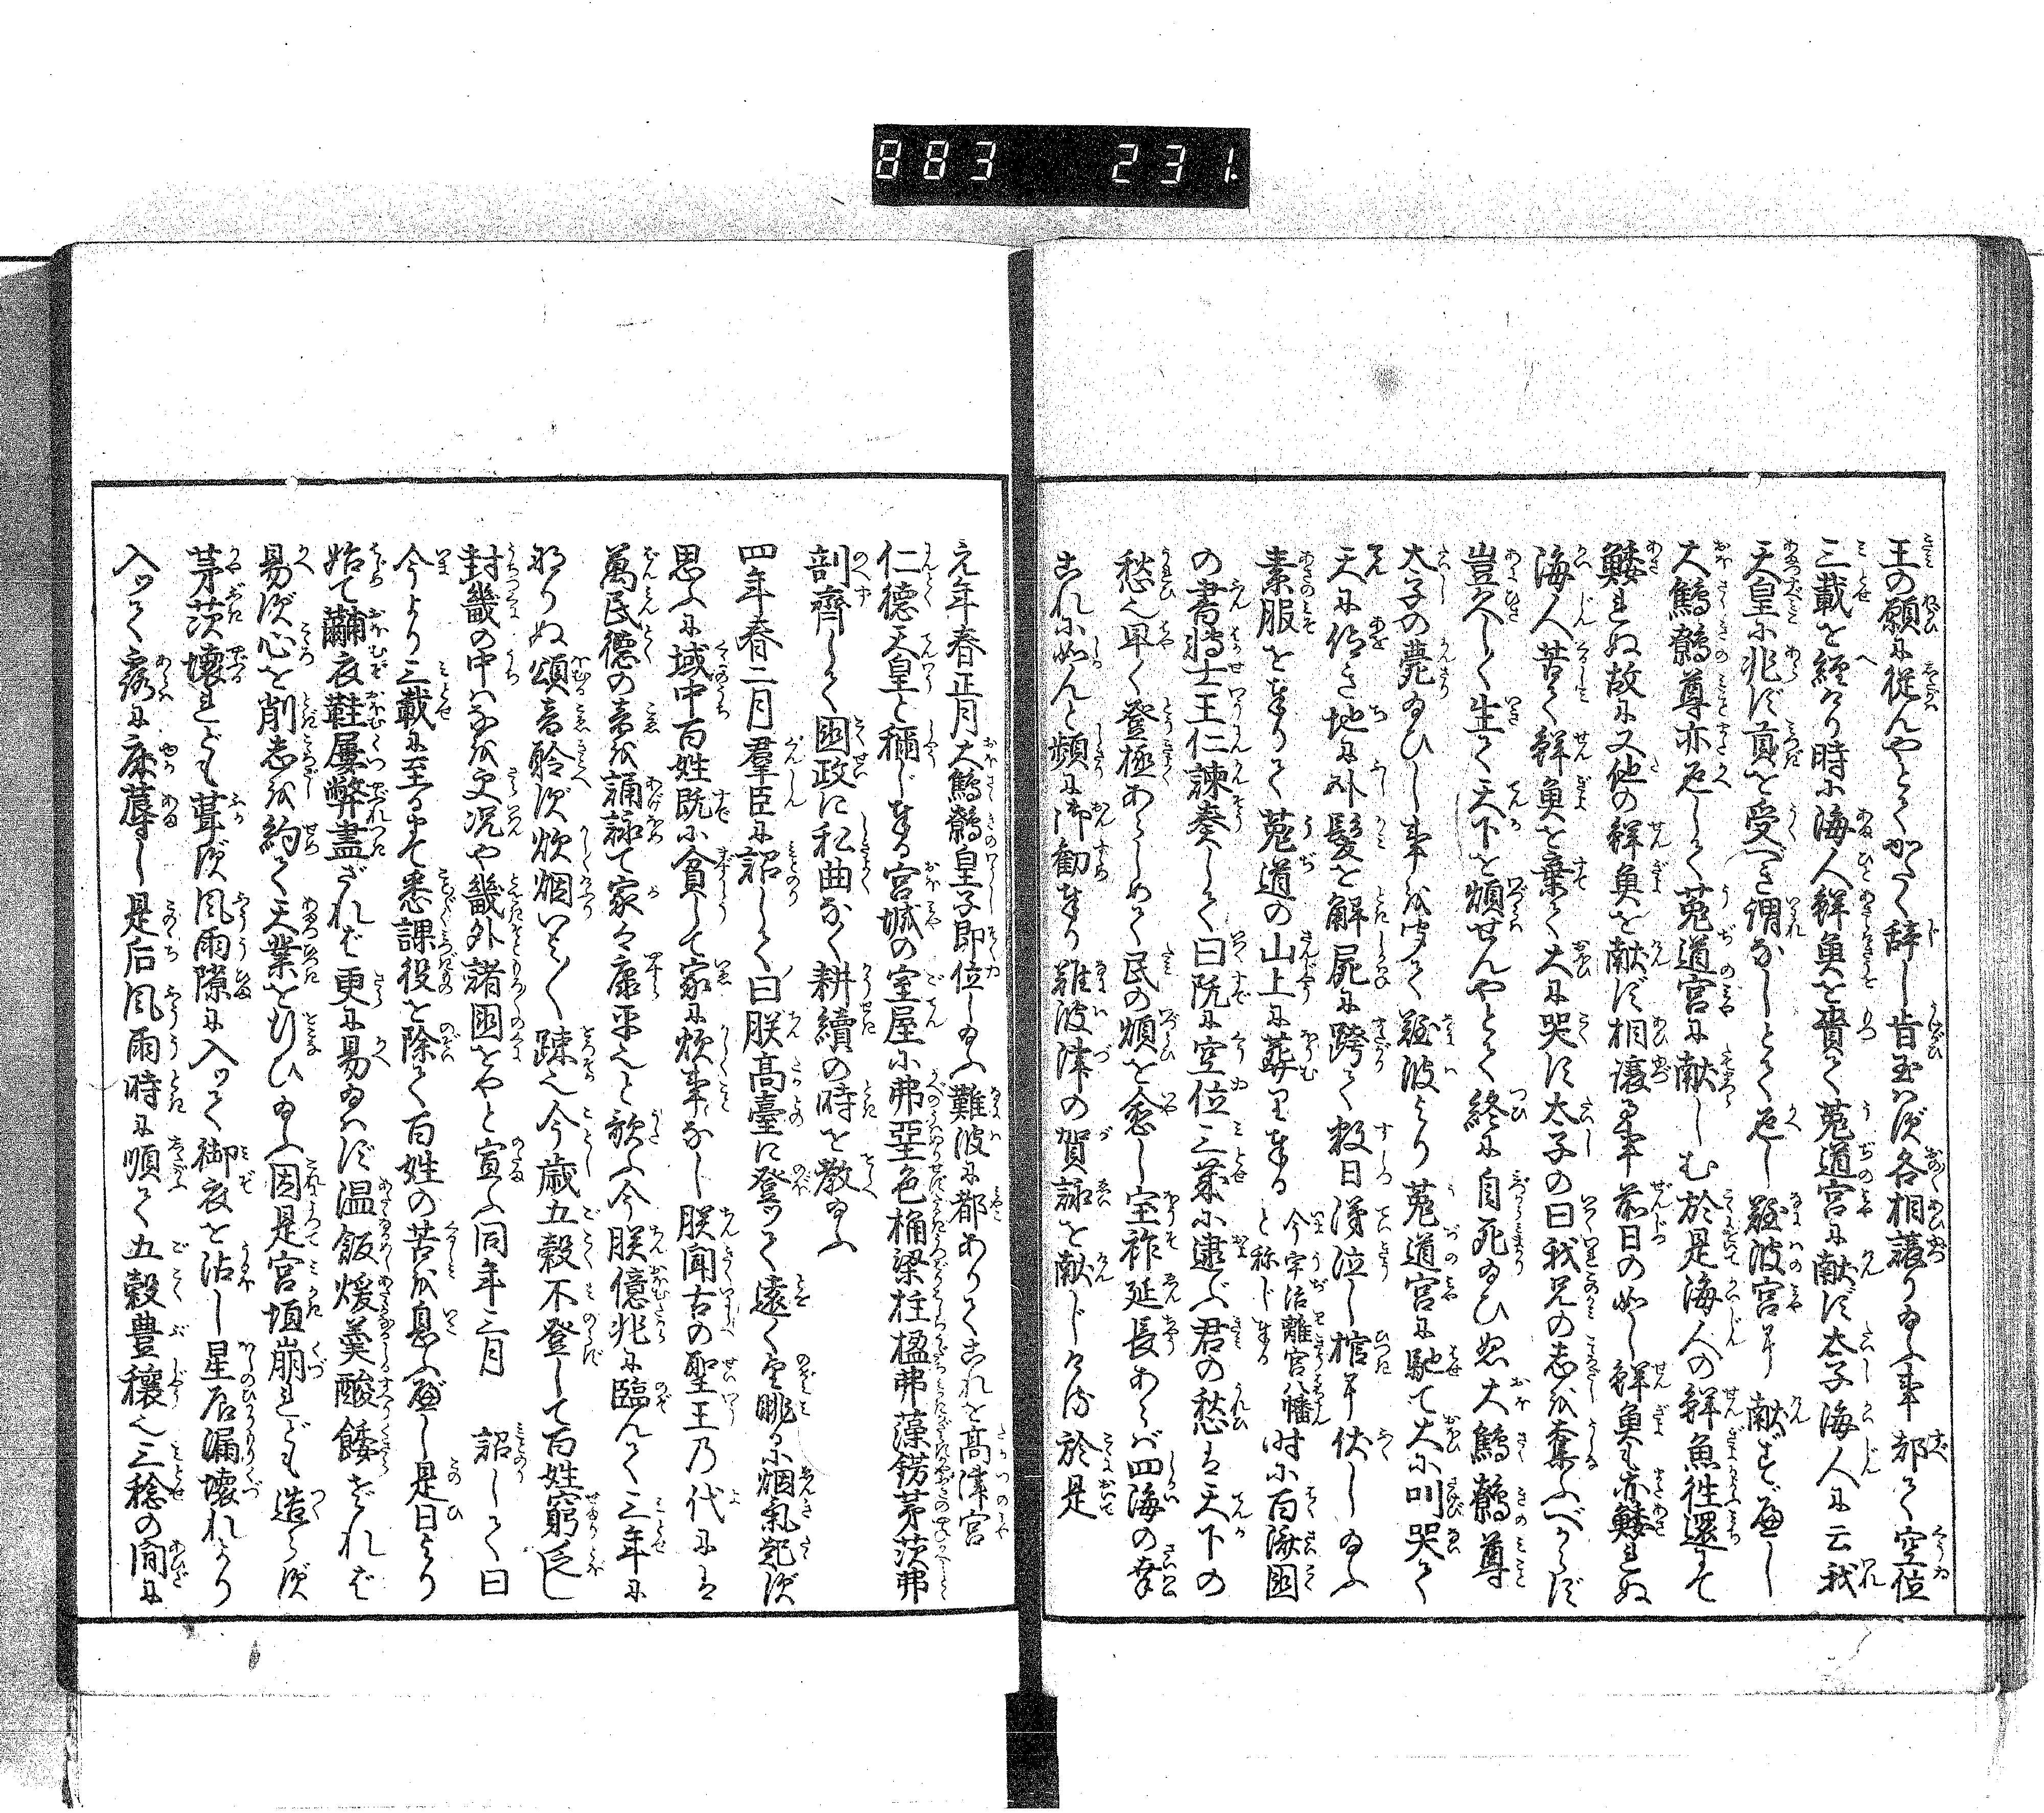 883 231.
王の願に従んやとてかたく辞し肯玉はず各相譲り玉ふ事都て空位
三載を経たり時に海人鮮魚を賚て菟道宮に献ず太子海人に云我
天皇に非ず貢を受べき謂なしとて返し難波宮に献ずべし
大鷦鷯尊亦返して菟道宮に献しむ於是海人の鮮魚往還にて
鯘れぬ故に又他の鮮魚を献ず相譲る事前日の如し鮮魚も亦鯘れぬ
海人苦て鮮魚を棄て大に哭に太子の曰我兄の志を奪ふべからず
豈久しく生て天下を煩せんやとて終に自死玉ひぬ大鷦鷯尊
太子の薨玉ひし事を聞て難波より菟道宮に馳て大に叫哭て
天に仰き地に外髪を解屍に跨て数日涕泣し棺に伏し玉ふ
素服を奉りて菟道の山上に葬り奉る 今宇治離宮八幡と称じ奉る 時に百済国
の書博士王仁諫奏して曰既に空位三歳に逮ぶ君の愁は天下の
愁也早く登極ましめて民の煩を愈し宝祚延長あらば四海の幸
これに如んと頻に御勧奉り難波津の賀詠を献じける於是
元年春正月大鷦鷯皇子即位し玉ふ難波に都ありてこれを高津宮
仁徳天皇と称し奉る宮城の室屋に弗堊色桷梁柱楹弗藻餝茅茨弗
剖齊して国政に私曲なく耕績の時を教玉ふ
四年春二月羣臣に詔して曰朕高臺に登つて遠く望眺に烟氣起ず
思ふに域中百姓既に貧して家に炊事なし朕聞古の聖王乃代には
萬民徳の音を誦詠て家々康平也と歌ふ今朕億兆に臨んて三年に
なりぬ頌音聆ず炊烟いよ〳〵疎也今歳五穀不登して百姓窮乏し
封畿の中はなを更況や畿外諸国をやと宣ふ同年三月 詔して曰
今より三載に至るまて悉課役を除て百姓の苦を息ふべし是日より
始て黼衣鞋屨弊盡ざれば更に易玉はず温飯煖羹酸餧ざれば
易ず心を削志を約て天業を行ひ玉ふ因是宮垣崩れども造らず
茅茨壊れども葺ず風雨隙に入つて御衣を沾し星辰漏壊れより
入つて露に床蓐し是后風雨時に順て五穀豊穣也三稔の間に